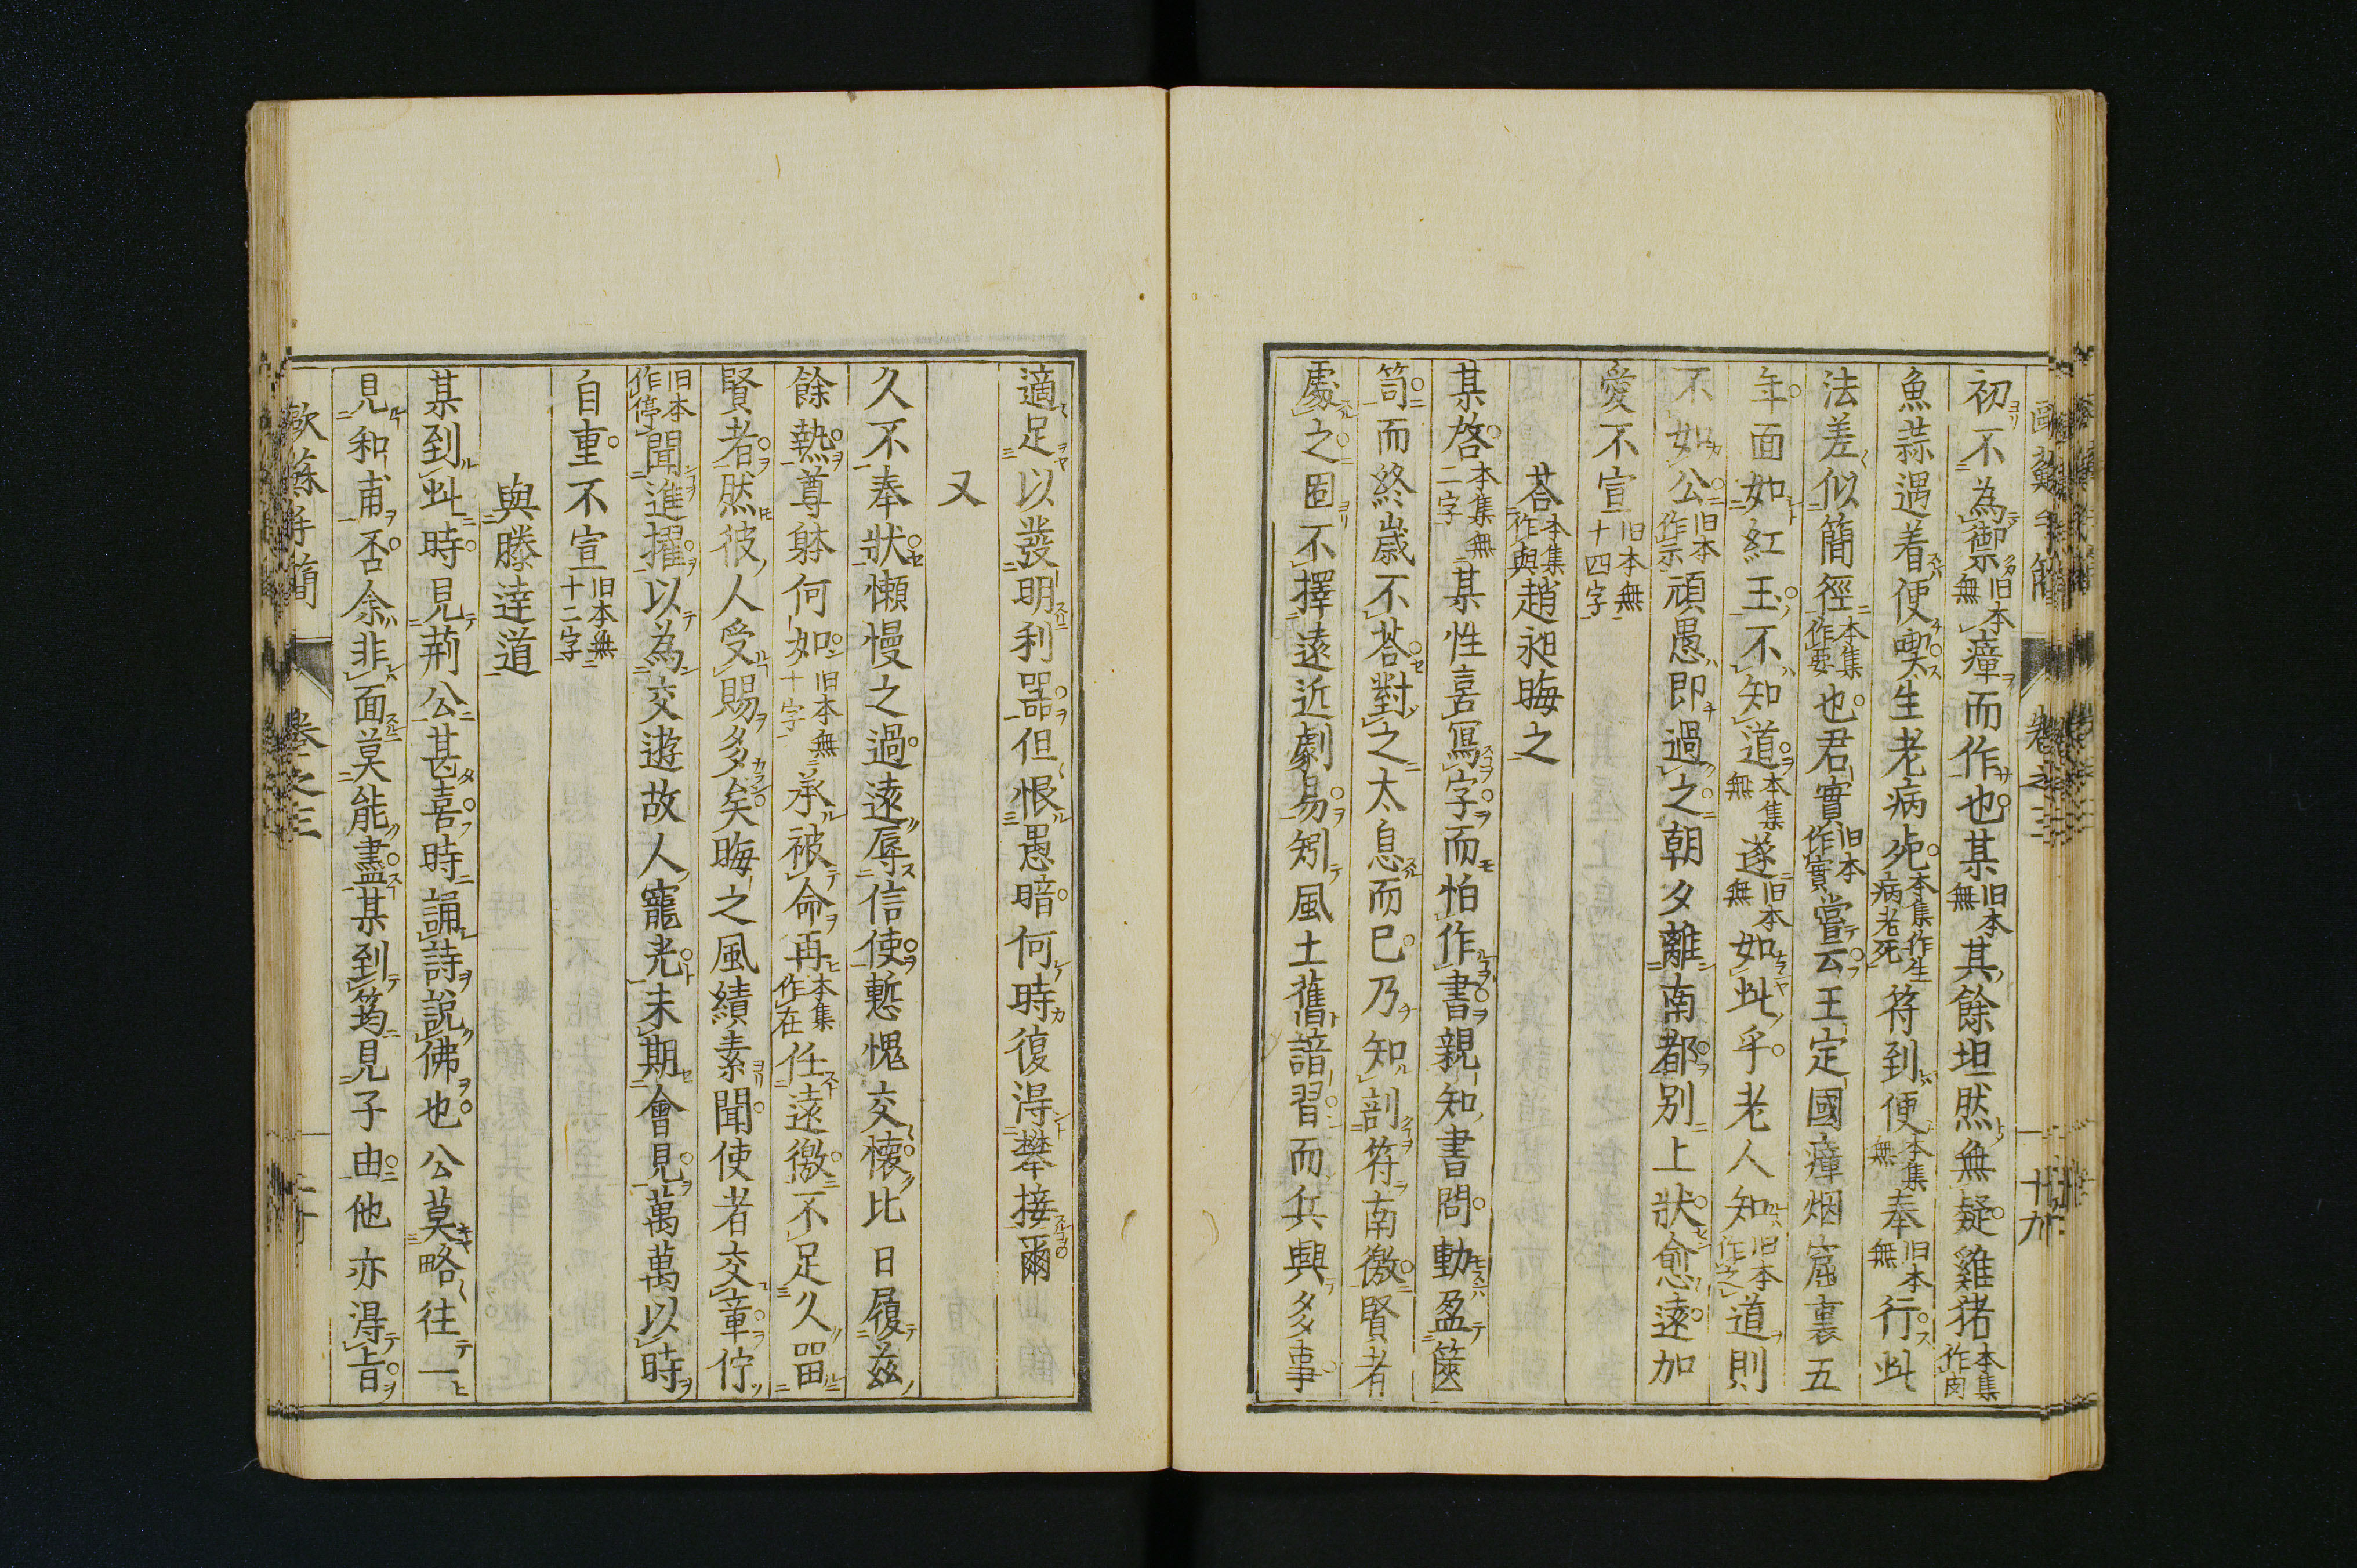 歐蘇手簡 卷之三 十九
初不為禦旧本無瘴而作也某旧本無其餘坦然無疑雞猪本集作肉
魚蒜遇着便喫生老病死本集作生病老死符到便本集無奉旧本無行此
法差似簡徑本集作要也君實旧本作實嘗云王定國瘴烟窟裏五
年面如紅玉不知道本集無遂旧本無如此乎老人知旧本作之道則
不如公旧本作示頑愚即過之朝夕離南都別上狀愈遠加
愛不宣旧本無十四字
荅本集作與趙昶晦之
某啓本集無二字某性喜寫字而怕作書親知書問動盈篋
笥而終歲不荅對之太息而已乃知剖符南徼賢者
處之固不擇遠近劇易矧風土舊諳習而兵興多事
適足以發明利器但恨愚暗何時復淂攀接爾
又
久不奉狀懶慢之過遠辱信使慙愧交懐比日履茲
餘熱尊躰何如旧本無十字承被命再本集作在任遠徼不足久畱
賢者然彼人受賜多矣晦之風績素聞使者交章佇
旧本作停聞進擢以為交遊故人寵光未期會見萬萬以時
自重不宣旧本無十二字
與滕逹道
某到此時見荊公甚喜時誦詩說佛也公莫略往一
見和甫否余非面莫能盡某到筠見子由他亦淂旨
歐蘇手簡 卷之三 二十